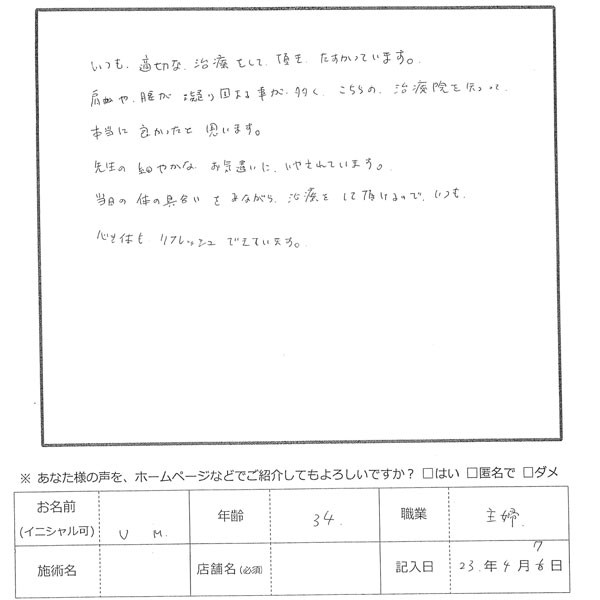 いつも、適切な、治療をして、頂き、たすかっています。
肩や、腰が凝り固まる事が多く、こちらの、治療院を知って、
本当に良かったと思います。
先生の細やかなお気遣いに、いやされています。
当日の体の具合いをみながら、治療をして頂けるので、いつも、
心も体もリフレッシュできています。
※ あなた様の声を、ホームページなどでご紹介してもよろしいですか？ □はい □匿名で □ダメ
お名前 (イニシャル可) U M. 年齢 34. 職業 主婦
施術名 店舗名(必須) 記入日 23.年4月7日